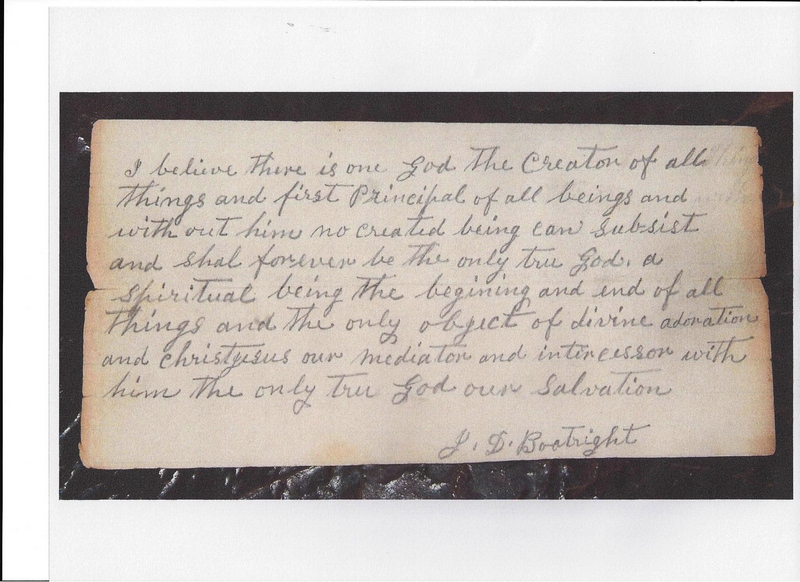 I believe there is one God the Creator of all
things and first Principal of all beings and
with out him no created being can sub-sist
and shal forever be the only tru God. a
spiritual being the begining and end of all
things and the only object of divine adoration
and christjesus our mediator and intercessor with
him the only tru God our Salvation
J. D. Boatright